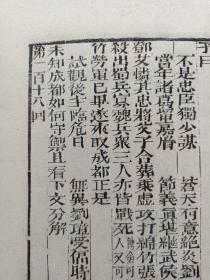 子曰
不是忠臣獨少謀 蒼天有意絶炎劉
當年諸葛畱嘉 節義眞堪繼武侯
鄧艾憐其忠將父子合葬乘虚攻打綿竹張
殺出蜀兵寡魏兵衆三人亦皆戰死
竹勞軍已畢遂來取成都正是
試觀後主臨危日 無異劉璋受偪時
未知成都如何守禦且看下文分解
第一百十八回